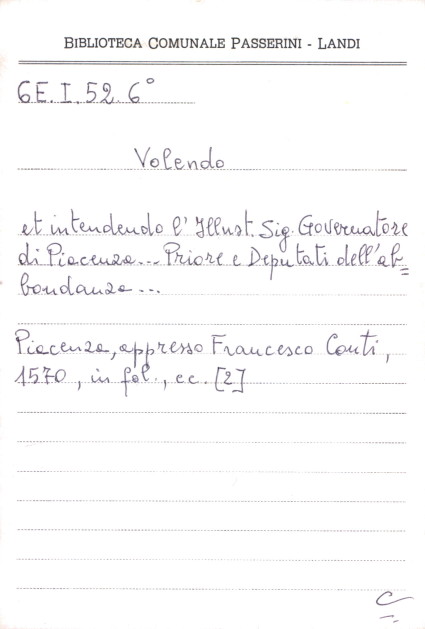 BIBLIOTECA COMUNALE PASSERINI - LANDI
6E. I. 52. 6°
Volendo
et intendendo l'Illust. Sig. Governatore
di Piacenza... Priore e Deputati dell'ab=
bondanza...
Piacenza, appresso Francesco Conti,
1570, in fol., cc. [2]
C